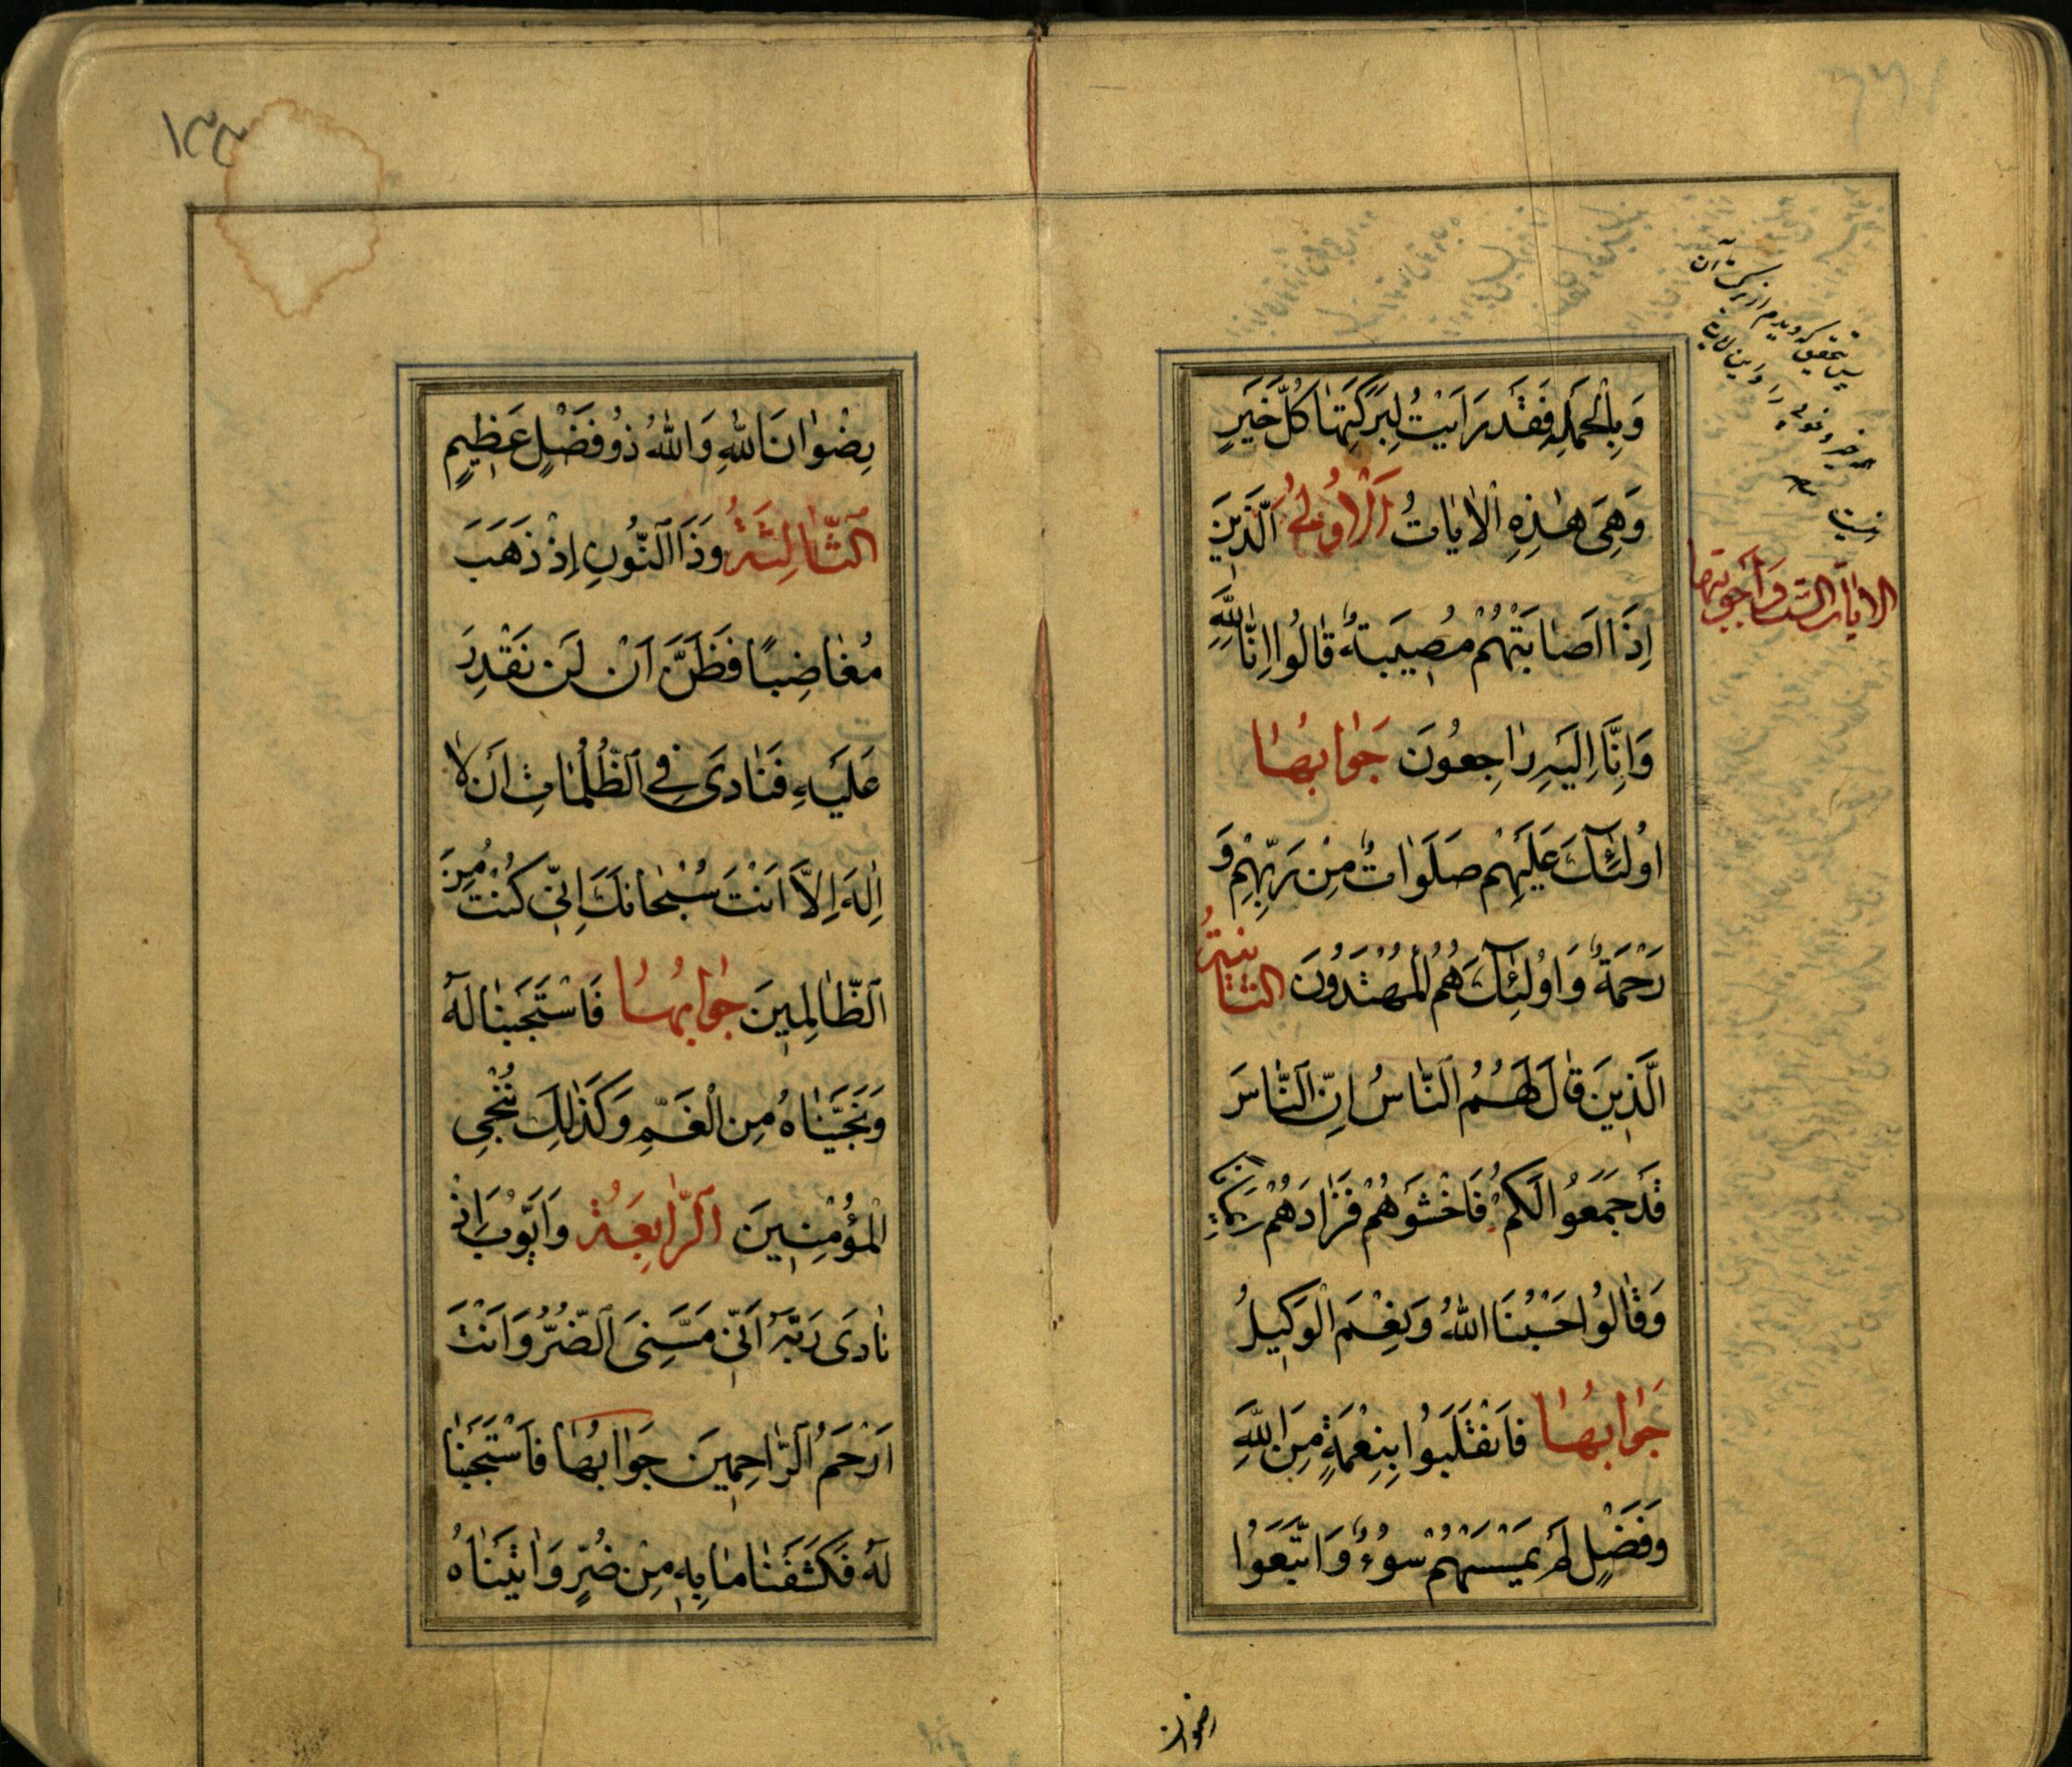 وَبِالْجُمْلَةِ فَقَدْ رَاَيْتُ لِبَرَكَتِهَا كُلَّ خَيْرٍ
وَهِيَ هٰذِهِ الْاٰيَاتُ اَلْاُولىٰ اَلَّذِينَ
اِذَا اَصَابَتْهُمْ مُصِيبَةٌ قَالُوا اِنَّا لِلّٰهِ
وَاِنَّا اِلَيْهِ رَاجِعُونَ جَوَابُهَا
اُولٰئِكَ عَلَيْهِمْ صَلَوَاتٌ مِنْ رَبِّهِمْ وَ
رَحْمَةٌ وَاُولٰئِكَ هُمُ الْمُهْتَدُونَ الثَّانِيَةُ
الَّذِينَ قَالَ لَهُمُ النَّاسُ اِنَّ النَّاسَ
قَدْ جَمَعُوا لَكُمْ فَاخْشَوْهُمْ فَزَادَهُمْ اِيمَانًا
وَقَالُوا حَسْبُنَا اللّٰهُ وَنِعْمَ الْوَكِيلُ
جَوَابُهَا فَانْقَلَبُوا بِنِعْمَةٍ مِنَ اللّٰهِ
وَفَضْلٍ لَمْ يَمْسَسْهُمْ سُوءٌ وَاتَّبَعُوا
رضوان
الايات الست واجوبتها
رِضْوَانَ اللّٰهِ وَاللّٰهُ ذُو فَضْلٍ عَظِيمٍ
اَلثَّالِثَةُ وَذَا النُّونِ اِذْ ذَهَبَ
مُغَاضِبًا فَظَنَّ اَنْ لَنْ نَقْدِرَ
عَلَيْهِ فَنَادَى فِي الظُّلُمَاتِ اَنْ لَا
اِلٰهَ اِلَّا اَنْتَ سُبْحَانَكَ اِنِّي كُنْتُ مِنَ
الظَّالِمِينَ جَوَابُهَا فَاسْتَجَبْنَا لَهُ
وَنَجَّيْنَاهُ مِنَ الْغَمِّ وَكَذٰلِكَ نُنْجِي
الْمُؤْمِنِينَ اَلرَّابِعَةُ وَاَيُّوبَ اِذْ
نَادَى رَبَّهُ اَنِّي مَسَّنِيَ الضُّرُّ وَاَنْتَ
اَرْحَمُ الرَّاحِمِينَ جَوَابُهَا فَاسْتَجَبْنَا
لَهُ فَكَشَفْنَا مَا بِهِ مِنْ ضُرٍّ وَاٰتَيْنَاهُ